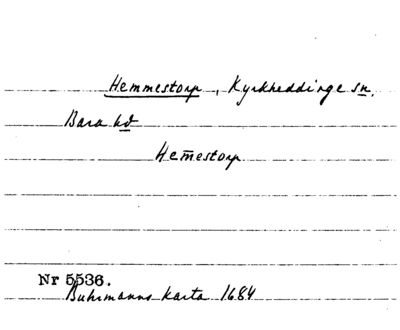 Hemmestorp, Kyrkheddinge sn.
Bara hd
Hem̅estorp
Nr 5536.
Buhrmanns karta 1684